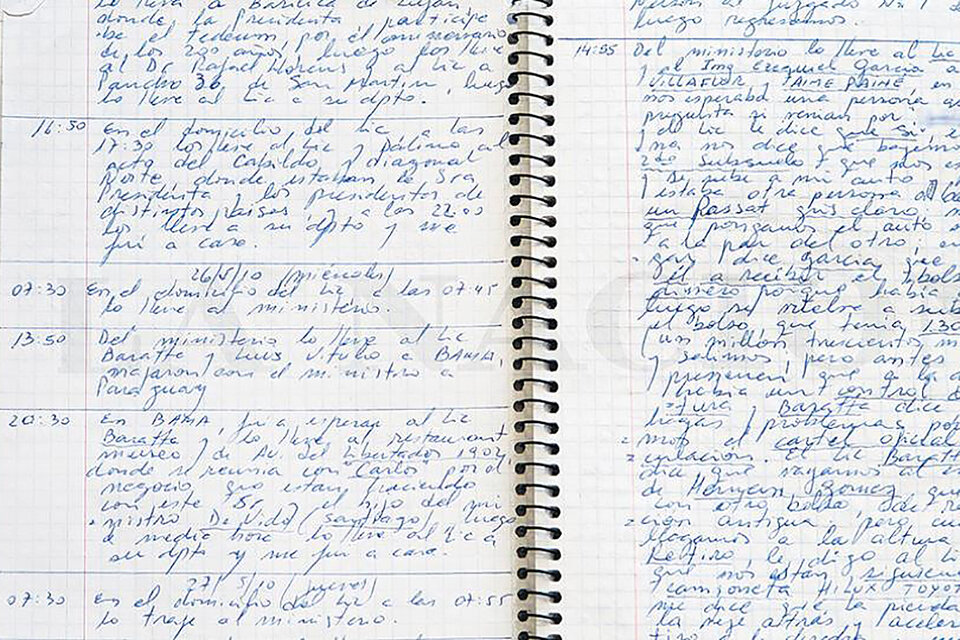 lo llevé a Basílica de Luján
donde la Presidenta, participe
de el tedeum, por el aniversario
de los 200 años, luego los llevé
al Dr Rafael y al Lic a
Pancho 36, de San Martin, luego
lo llevé al Lic a su dpto.
16:50 En el domicilio del Lic, a las
17:30 los llevé al Lic y Paluno al
del Cabildo, y diagonal
Norte, donde estaban la Sra
Presidenta y los presidentes de
distintos países, y a las 22:00
los llevé a su dpto y me
fui a casa.
26/5/10 (miércoles)
07:30 En el domicilio del Lic a las 07:45
lo llevé al ministerio.
13:50 Del ministerio lo llevé al Lic
Baratta y Luis Vitulo a BAMA,
viajaron con el ministro a
Paraguay
20:30 En BAMA, fui a esperar al Lic
Baratta y lo llevé al restaurant
museo, de Av. del Libertador 1902
donde se reunia con "Carlos" por el
negocio que estan haciendo
con este Sr, el hijo del mi
nistro De Vido, (Santiago, luego
a media hora lo llevé al Lic a
su dpto y me fui a casa.
27/5/10 (jueves)
07:30 En el domicilio del Lic a las 07:55
lo traje al ministerio.
al Juzgado Nº 1
luego regresamos.
14:55 Del ministerio lo llevé al Lic
y al Ing Ezequiel García a
VILLAFLOR y AIME PAINE, en
nos esperaba una persona
pregunta si venian por
y de Lic le dice que si, e
na nos dice que bajemos
2do Subsuelo y que nos es
y se sube a mi auto
estaba otra persona al la
un Passat gris claro, n
que pongamos el auto
a la par del otro; en
gar, dice García que
él a recibir el bolso
primero porque habia
luego se vuelve a sub
el bolso, que tenia 1.30
(un millon trescientos m
y salimos, pero antes
y presencien que a la
habia un control de
stura y Baratta dice
llegas y problemas por
mos el cartel oficial
culación. El Lic Baratta
dice que vayamos al
de Hernan Gomez, que
con otro bolso,
ción antigua, pero cu
llegamos a la altura
Retiro, le digo al Li
que nos estan siguien
1 camioneta HILUX TOYOT
me dice que la pierda
la dejé atrás y aceler
LA NAC